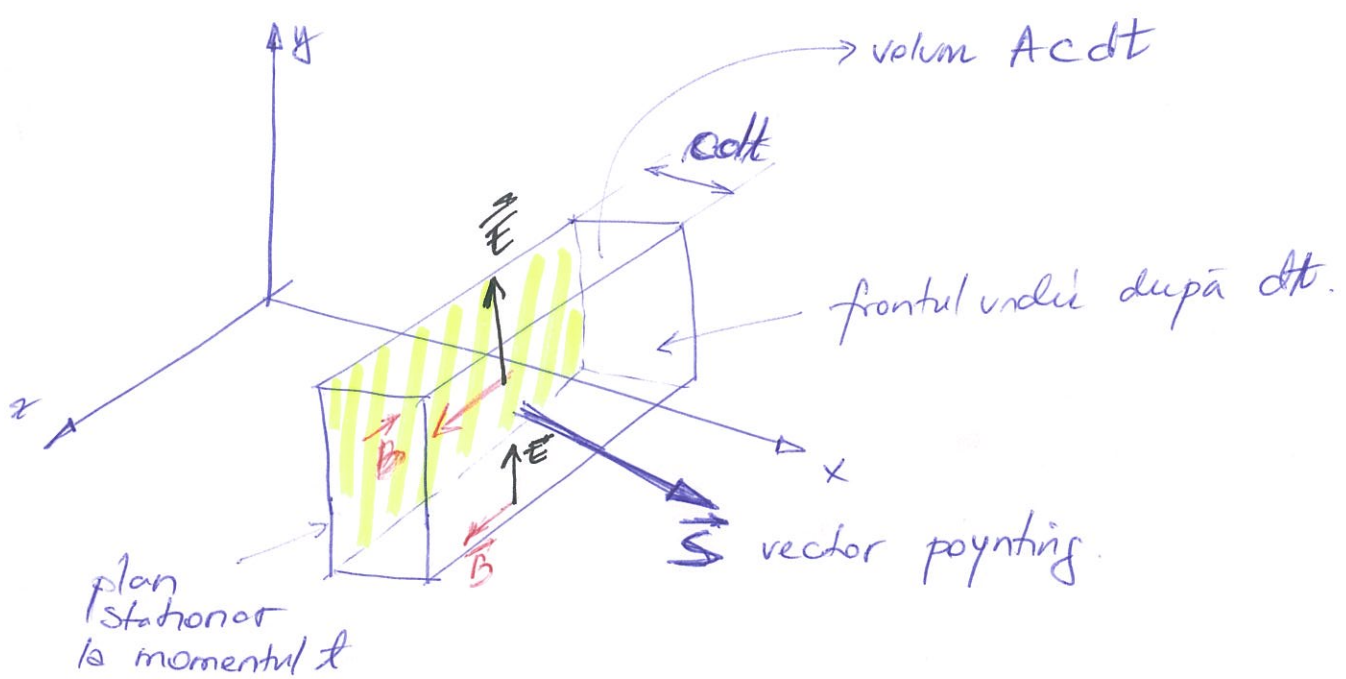 y
volum Acdt
cdt
E
frontul undei după dt.
z
B
E
x
B
S vector poynting.
plan
stationar
la momentul t